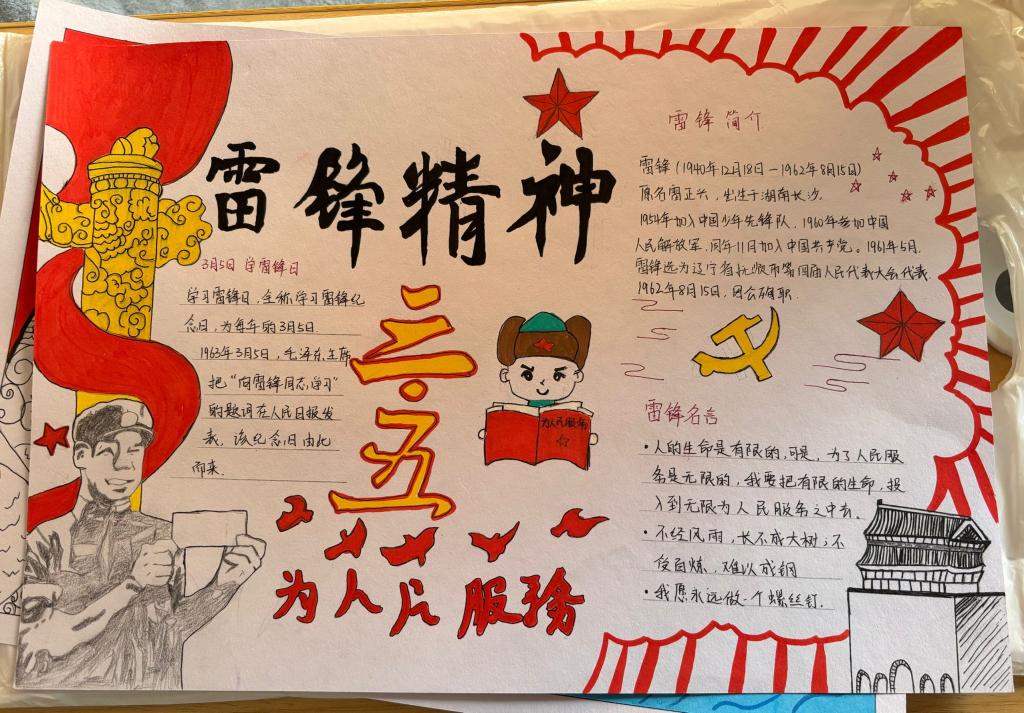 雷锋精神
3月5日 学雷锋日
学习雷锋日，全称学习雷锋纪
念日，为每年的3月5日
1963年3月5日，毛泽东主席
把“向雷锋同志学习”
的题词在人民日报发
表，该纪念日由此
而来.
三·五
为人民服务
为人民服务
雷锋简介
雷锋（1940年12月18日－1962年8月15日）
原名雷正兴，出生于湖南长沙.
1954年加入中国少年先锋队，1960年参加中国
人民解放军，同年11月加入中国共产党。1961年5月，
雷锋选为辽宁省抚顺市第四届人民代表大会代表.
1962年8月15日，因公殉职.
雷锋名言
·人的生命是有限的，可是，为了人民服
务是无限的，我要把有限的生命，投
入到无限为人民服务之中去.
·不经风雨，长不成大树；不
受百炼，难以成钢
·我愿永远做一个螺丝钉.